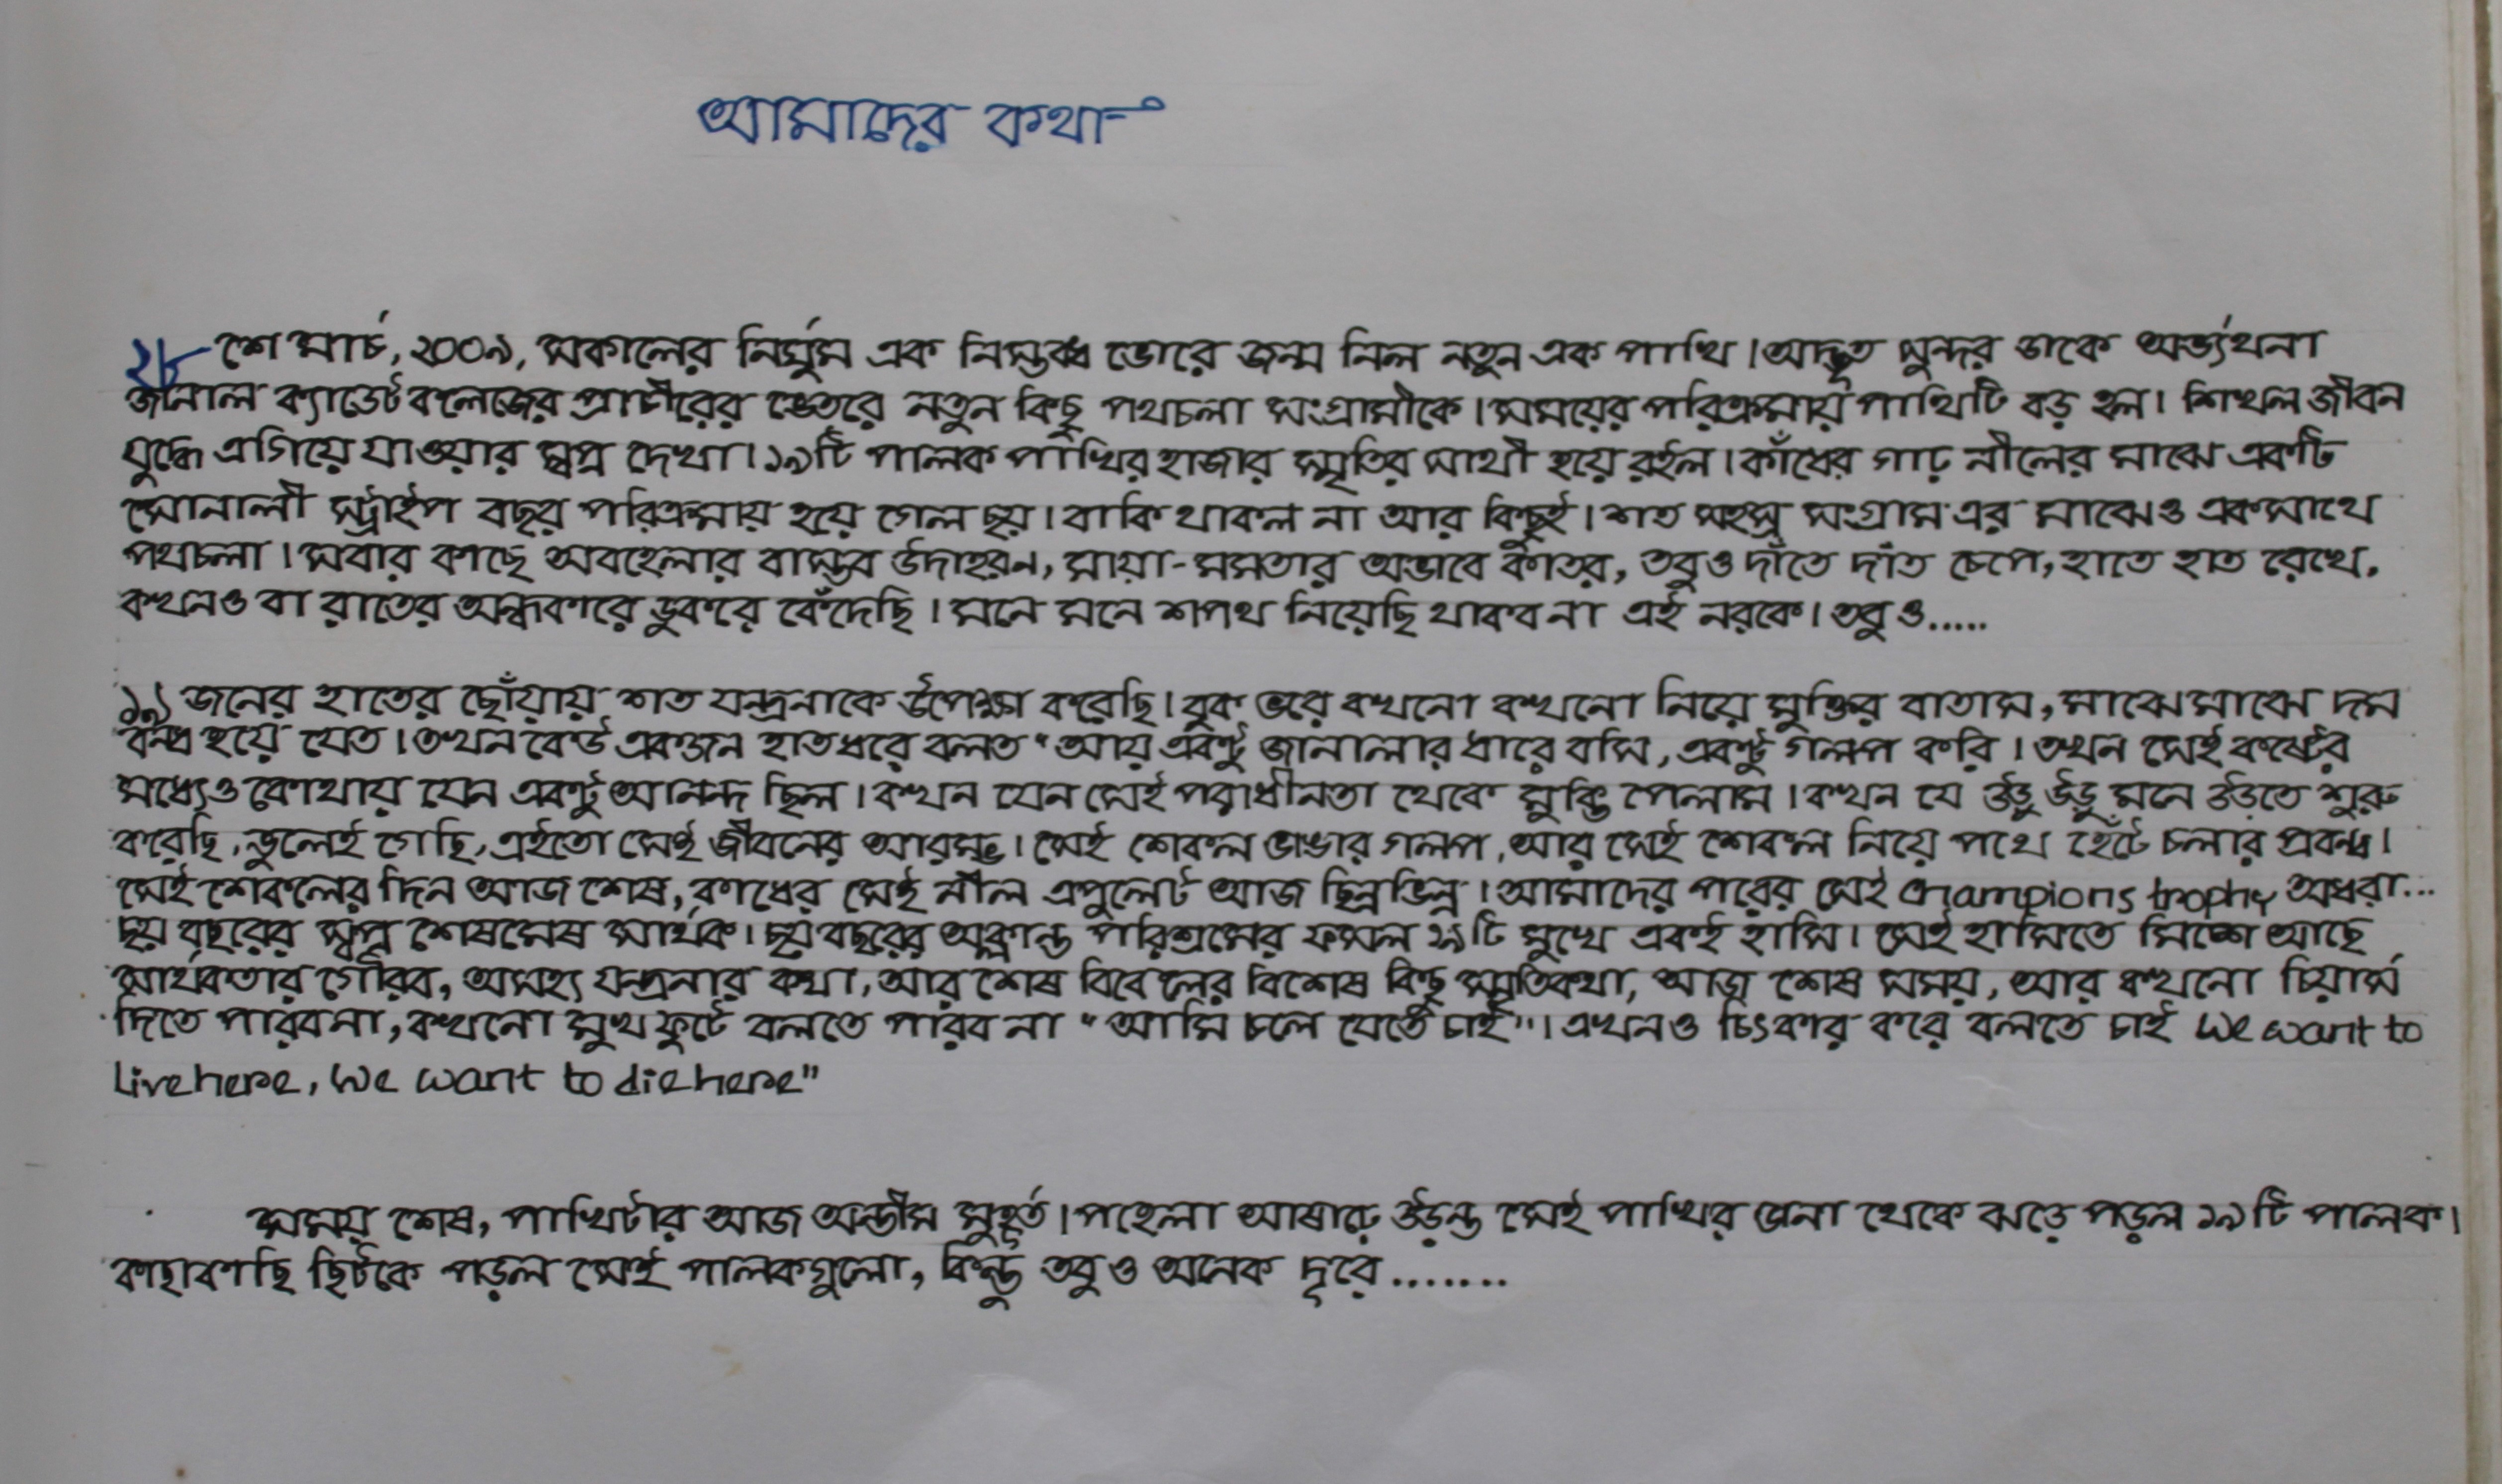 আমাদের কথা
২৮ শে মার্চ, ২০০৯, সকালের নির্ঘুম এক নিস্তব্ধ ভোরে জন্ম নিল নতুন এক পাখি। অদ্ভূত সুন্দর ডাকে অভ্যর্থনা
জানাল ক্যাডেট কলেজের প্রাচীরের ভেতরে নতুন কিছু পথচলা সংগ্রামীকে। সময়ের পরিক্রমায় পাখিটি বড় হল। শিখল জীবন
যুদ্ধে এগিয়ে যাওয়ার স্বপ্ন দেখা। ১৯টি পালক পাখির হাজার স্মৃতির সাথী হয়ে রইল। কাঁধের গাঢ় নীলের মাঝে একটি
সোনালী স্ট্রাইপ বছর পরিক্রমায় হয়ে গেল ছয়। বাকি থাকল না আর কিছুই। শত সহস্র সংগ্রাম এর মাঝেও একসাথে
পথচলা। সবার কাছে অবহেলার বাস্তব উদাহরন, মায়া-মমতার অভাবে কাতর, তবুও দাঁতে দাঁত চেপে, হাতে হাত রেখে,
কখনও বা রাতের অন্ধকারে ডুকরে কেঁদেছি। মনে মনে শপথ নিয়েছি থাকব না এই নরকে। তবুও.....
১৯ জনের হাতের ছোঁয়ায় শত যন্ত্রনাকে উপেক্ষা করেছি। বুক ভরে কখনো কখনো নিয়ে মুক্তির বাতাস, মাঝে মাঝে দম
বন্ধ হয়ে যেত। তখন কেউ একজন হাত ধরে বলত "আয় একটু জানালার ধারে বসি, একটু গল্প করি। তখন সেই কষ্টের
মধ্যেও কোথায় যেন একটু আনন্দ ছিল। কখন যেন সেই পরাধীনতা থেকে মুক্তি পেলাম। কখন যে উড়ু উড়ু মনে উড়তে শুরু
করেছি, ভুলেই গেছি, এইতো সেই জীবনের আরম্ভ। সেই শেকল ভাঙার গল্প, আর সেই শেকল নিয়ে পথে হেঁটে চলার প্রবন্ধ।
সেই শেকলের দিন আজ শেষ, কাধের সেই নীল এপুলেট আজ ছিন্নভিন্ন। আমাদের পরের সেই champions trophy অধরা...
ছয় বছরের স্বপ্ন শেষমেষ সার্থক। ছয় বছরের অক্লান্ত পরিশ্রমের ফসল ১৯টি মুখে একই হাসি। সেই হাসিতে মিশে আছে
সার্থকতার গৌরব, অসহ্য যন্ত্রনার কথা, আর শেষ বিকেলের বিশেষ কিছু স্মৃতিকথা, আজ শেষ সময়, আর কখনো চিয়ার্স
দিতে পারবনা, কখনো মুখ ফুটে বলতে পারব না "আমি চলে যেতে চাই"। এখনও চিৎকার করে বলতে চাই We want to
Live here, We want to die here"
সময় শেষ, পাখিটার আজ অন্তীম মুহূর্ত। পহেলা আষাঢ়ে উড়ন্ত সেই পাখির ডেনা থেকে ঝড়ে পড়ল ১৯টি পালক।
কাছাকাছি ছিটকে পড়ল সেই পালকগুলো, কিন্তু তবুও অনেক দূরে.......